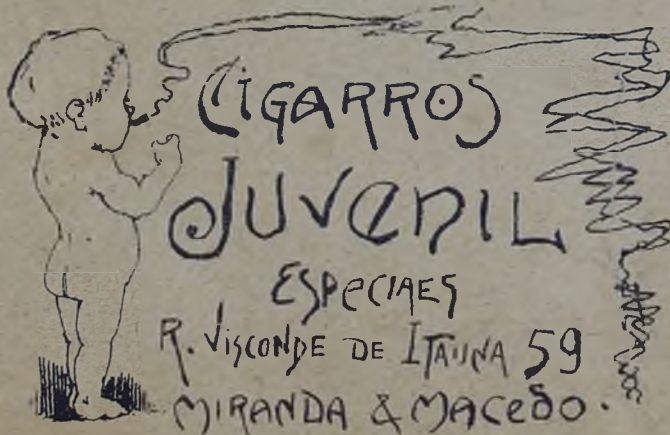 CIGARROS
JUVENIL
ESPECIAES
R. VISCONDE DE ITAUNA 59
MIRANDA & MACEDO.